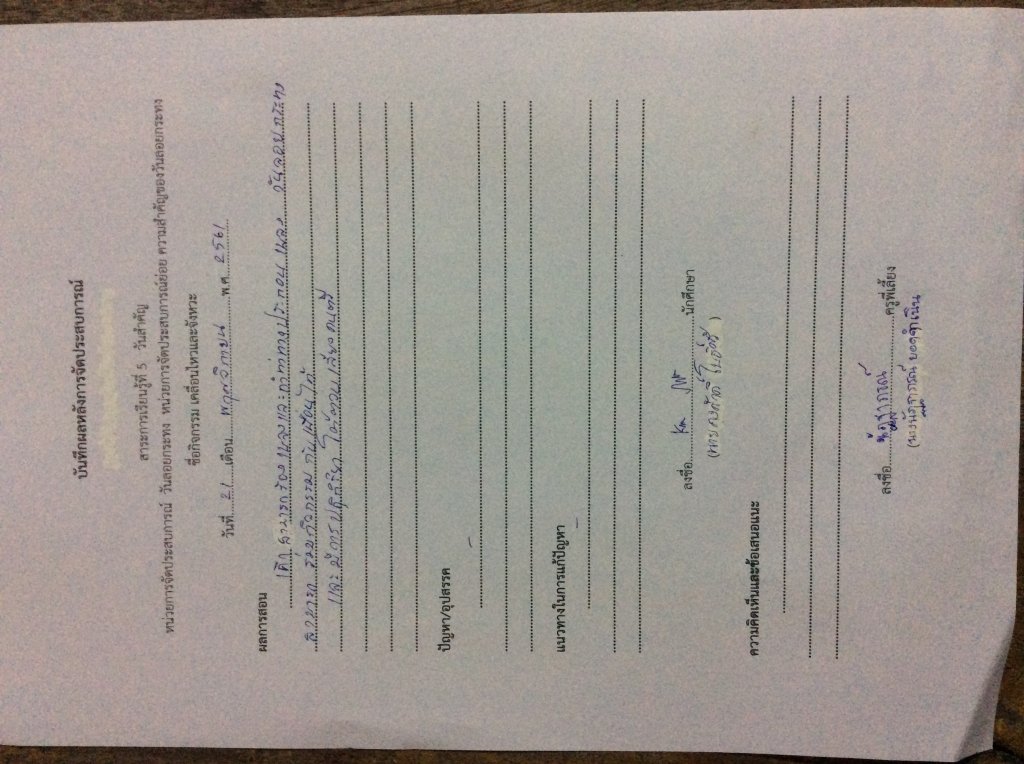 บันทึกผลหลังการจัดประสบการณ์
สาระการเรียนรู้ที่ 5 วันสำคัญ
หน่วยการจัดประสบการณ์ วันลอยกระทง หน่วยการจัดประสบการณ์ย่อย ความสำคัญของวันลอยกระทง
ชื่อกิจกรรม เคลื่อนไหวและจังหวะ
วันที่ 21 เดือน พฤศจิกายน พ.ศ. 2561
ผลการสอน
เด็กสามารถร้องเพลงและทำท่าทางประกอบเพลง วันลอยกระทง
สามารถ ร่วมกิจกรรม กับเพื่อนได้
และ มีการปฏิกิริยา โต้ตอบเสียงดนตรี
ปัญหา/อุปสรรค
-
แนวทางในการแก้ปัญหา
-
ลงชื่อ นักศึกษา
ความคิดเห็นและข้อเสนอแนะ
ลงชื่อ ครูพี่เลี้ยง